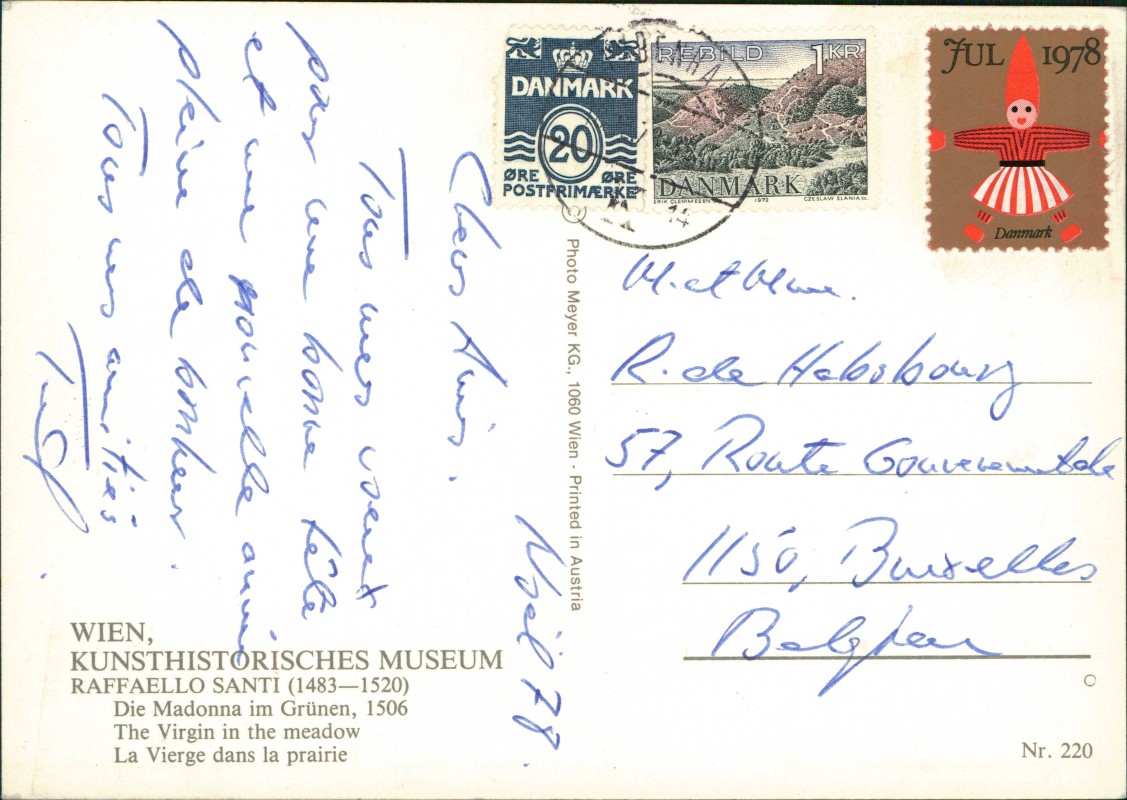 DANMARK
20
ØRE ØRE
POSTFRIMÆRKE
REBILD 1 KR
DANMARK
ERIK CLEMMESEN 1972 CZESLAW SLANIA sc.
14
JUL 1978
Danmark
Noël 78.
Chers Amis.
Tous mes voeux
pour une bonne fête
et une nouvelle année
pleine de bonheur.
Tous mes amitiés
M. et Mme.
R. de Habsbourg
57, Route Gouvernementale
1150, Bruxelles
Belgien
Photo Meyer KG., 1060 Wien - Printed in Austria
WIEN,
KUNSTHISTORISCHES MUSEUM
RAFFAELLO SANTI (1483—1520)
Die Madonna im Grünen, 1506
The Virgin in the meadow
La Vierge dans la prairie
Nr. 220